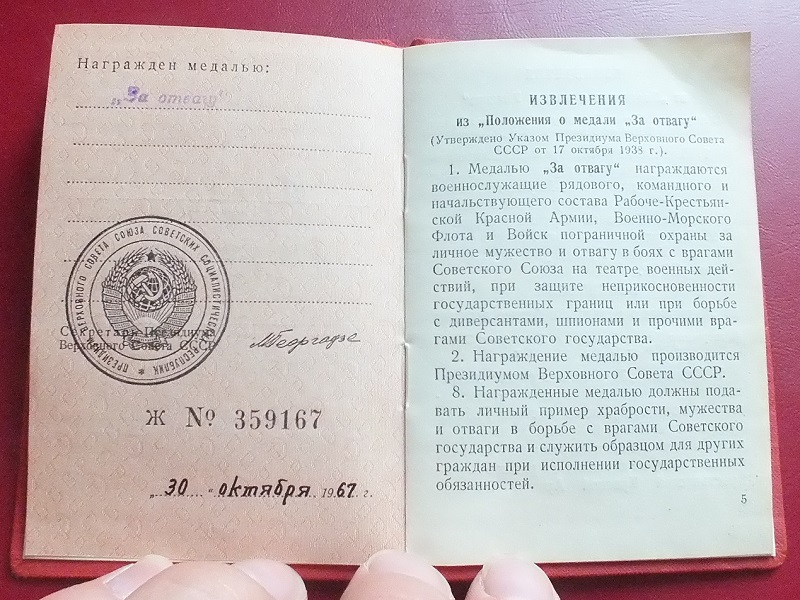 Награжден медалью:
„За отвагу“
ПРЕЗИДИУМ ВЕРХОВНОГО СОВЕТА СОЮЗА СОВЕТСКИХ СОЦИАЛИСТИЧЕСКИХ РЕСПУБЛИК *
Секретарь Президиума
Верховного Совета СССР
МГеоргадзе
Ж № 359167
„30“ октября 1967 г.
ИЗВЛЕЧЕНИЯ
из „Положения о медали „За отвагу“
(Утверждено Указом Президиума Верховного Совета
СССР от 17 октября 1938 г.).
1. Медалью „За отвагу“ награждаются
военнослужащие рядового, командного и
начальствующего состава Рабоче-Крестьян-
ской Красной Армии, Военно-Морского
Флота и Войск пограничной охраны за
личное мужество и отвагу в боях с врагами
Советского Союза на театре военных дей-
ствий, при защите неприкосновенности
государственных границ или при борьбе
с диверсантами, шпионами и прочими вра-
гами Советского государства.
2. Награждение медалью производится
Президиумом Верховного Совета СССР.
8. Награжденные медалью должны пода-
вать личный пример храбрости, мужества
и отваги в борьбе с врагами Советского
государства и служить образцом для других
граждан при исполнении государственных
обязанностей.
5